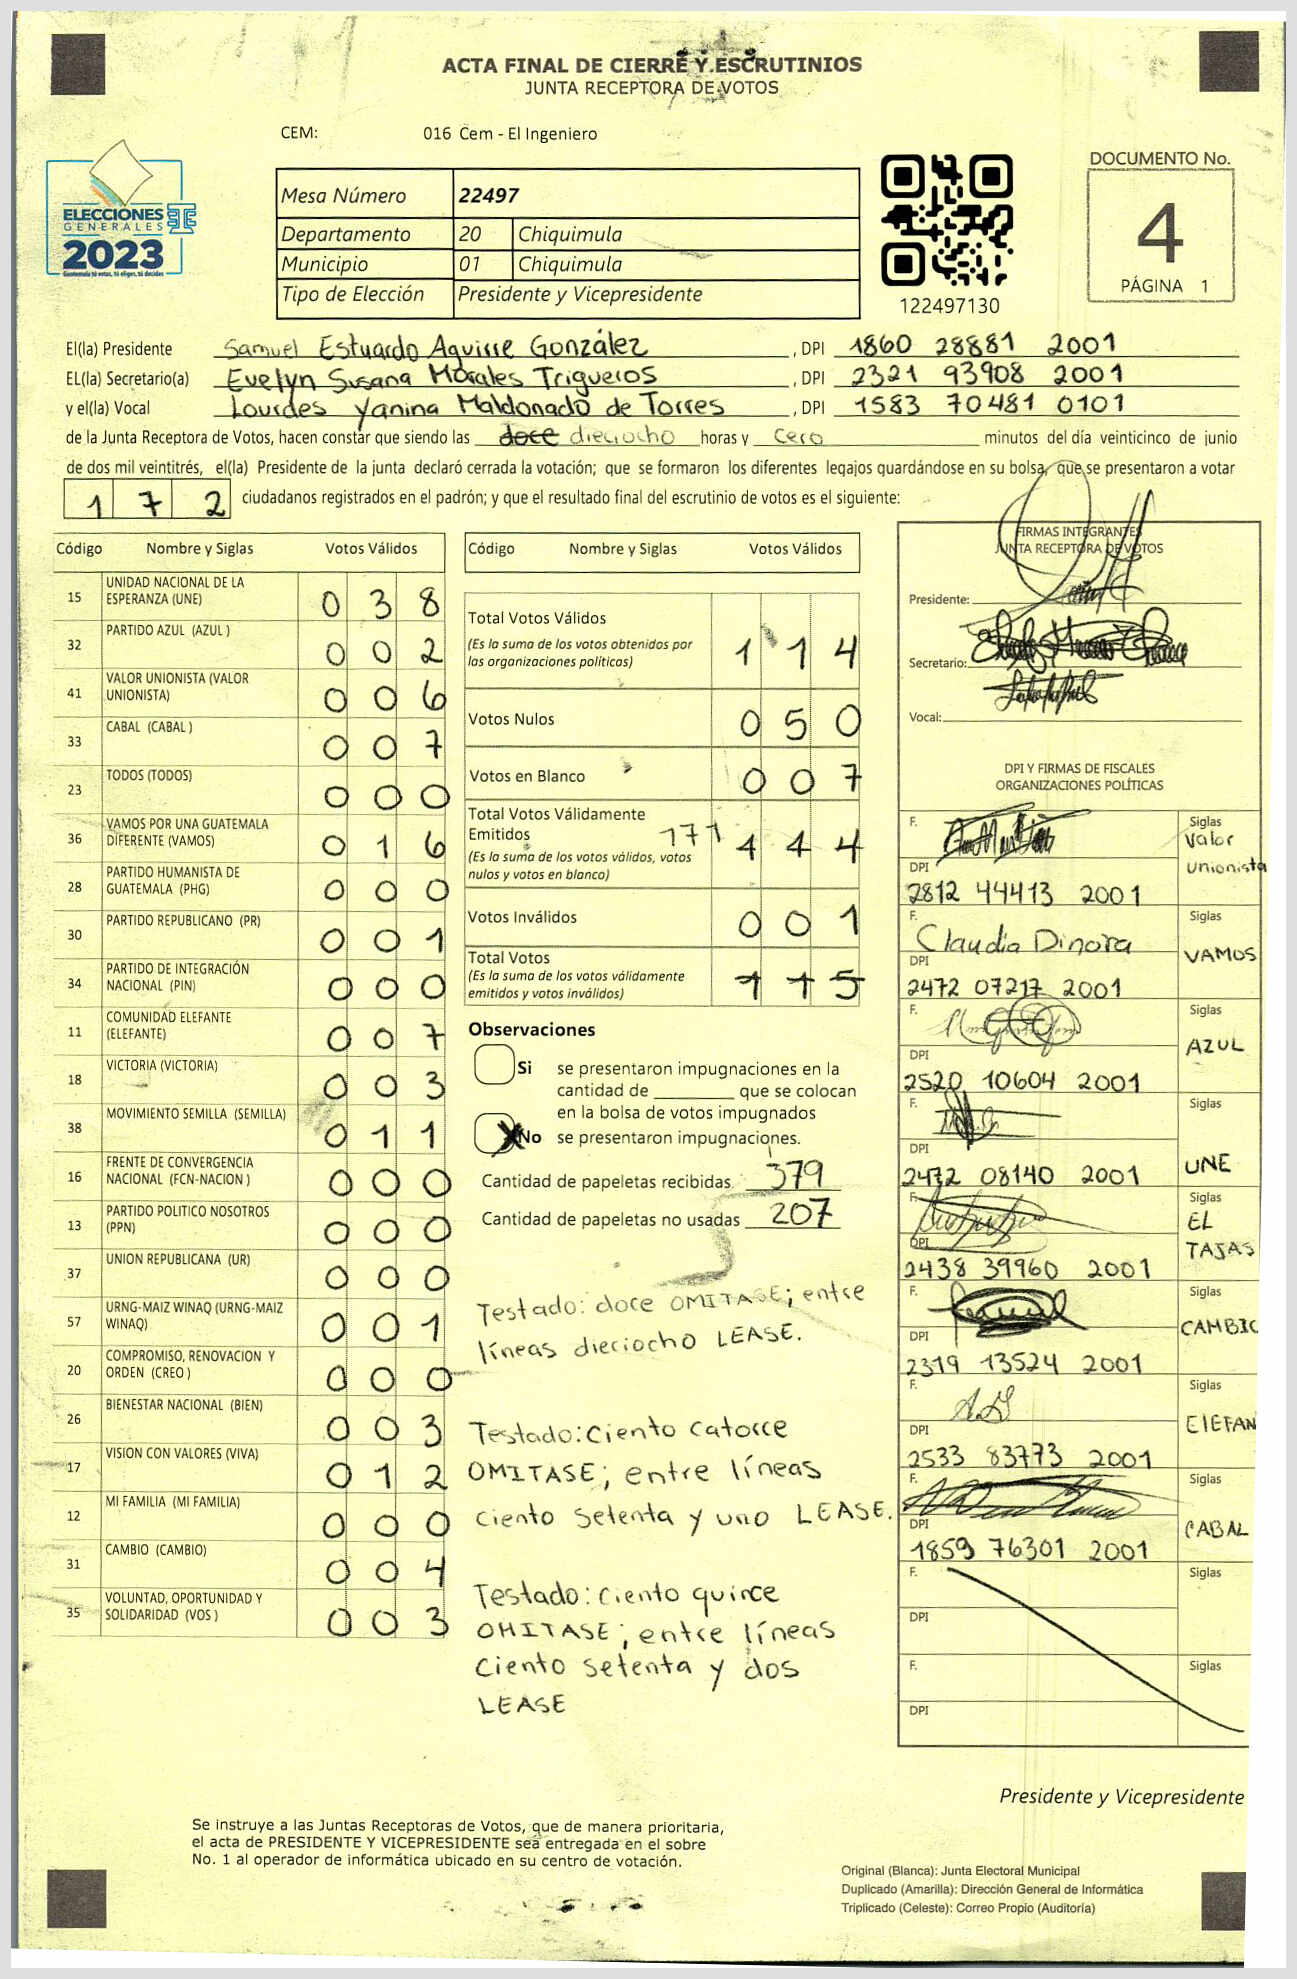 ACTA FINAL DE CIERRE Y ESCRUTINIOS
JUNTA RECEPTORA DE VOTOS
CEM: 016 Cem - El Ingeniero
ELECCIONES
GENERALES
2023
Guatemala tú votas, tú eliges, tú decides
Mesa Número 22497
Departamento 20 Chiquimula
Municipio 01 Chiquimula
Tipo de Elección Presidente y Vicepresidente
122497130
DOCUMENTO No.
4
PÁGINA 1
El(la) Presidente Samuel Estuardo Aguirre González, DPI 1860 28881 2001
EL(la) Secretario(a) Evelyn Susana Morales Trigueros, DPI 2321 93908 2001
y el(la) Vocal Lourdes Yanina Maldonado de Torres, DPI 1583 70481 0101
de la Junta Receptora de Votos, hacen constar que siendo las doce dieciocho horas y cero minutos del día veinticinco de junio
de dos mil veintitrés, el(la) Presidente de la junta declaró cerrada la votación; que se formaron los diferentes legajos guardándose en su bolsa, que se presentaron a votar
172 ciudadanos registrados en el padrón; y que el resultado final del escrutinio de votos es el siguiente:
Código Nombre y Siglas Votos Válidos
15 UNIDAD NACIONAL DE LA ESPERANZA (UNE) 038
32 PARTIDO AZUL (AZUL ) 002
41 VALOR UNIONISTA (VALOR UNIONISTA) 006
33 CABAL (CABAL ) 007
23 TODOS (TODOS) 000
36 VAMOS POR UNA GUATEMALA DIFERENTE (VAMOS) 016
28 PARTIDO HUMANISTA DE GUATEMALA (PHG) 000
30 PARTIDO REPUBLICANO (PR) 001
34 PARTIDO DE INTEGRACIÓN NACIONAL (PIN) 000
11 COMUNIDAD ELEFANTE (ELEFANTE) 007
18 VICTORIA (VICTORIA) 003
38 MOVIMIENTO SEMILLA (SEMILLA) 011
16 FRENTE DE CONVERGENCIA NACIONAL (FCN-NACION ) 000
13 PARTIDO POLITICO NOSOTROS (PPN) 000
37 UNION REPUBLICANA (UR) 000
57 URNG-MAIZ WINAQ (URNG-MAIZ WINAQ) 001
20 COMPROMISO, RENOVACION Y ORDEN (CREO ) 000
26 BIENESTAR NACIONAL (BIEN) 003
17 VISION CON VALORES (VIVA) 012
12 MI FAMILIA (MI FAMILIA) 000
31 CAMBIO (CAMBIO) 004
35 VOLUNTAD, OPORTUNIDAD Y SOLIDARIDAD (VOS ) 003
Código Nombre y Siglas Votos Válidos
Total Votos Válidos 114
(Es la suma de los votos obtenidos por
las organizaciones políticas)
Votos Nulos 050
Votos en Blanco 007
Total Votos Válidamente
Emitidos 171
(Es la suma de los votos válidos, votos
nulos y votos en blanco)
Votos Inválidos 001
Total Votos 115
(Es la suma de los votos válidamente
emitidos y votos inválidos)
Observaciones
Si se presentaron impugnaciones en la
cantidad de ________ que se colocan
en la bolsa de votos impugnados
X No se presentaron impugnaciones.
Cantidad de papeletas recibidas 379
Cantidad de papeletas no usadas 207
Testado: doce OMITASE; entre
líneas dieciocho LEASE.
Testado: Ciento catorce
OMITASE; entre líneas
ciento setenta y uno LEASE.
Testado: Ciento quince
OMITASE; entre líneas
Ciento setenta y dos
LEASE
FIRMAS INTEGRANTES
JUNTA RECEPTORA DE VOTOS
Presidente:
Secretario:
Vocal:
DPI Y FIRMAS DE FISCALES
ORGANIZACIONES POLÍTICAS
F. Siglas Valor Unionista
DPI 2812 44413 2001
F. Claudia Dinora Siglas VAMOS
DPI 2472 07217 2001
F. Siglas AZUL
DPI 2520 10604 2001
F. Siglas UNE
DPI 2472 08140 2001
F. Siglas EL TAJAS
DPI 2438 39960 2001
F. Siglas CAMBIO
DPI 2319 13524 2001
F. Siglas ElEFAN
DPI 2533 83773 2001
F. Siglas CABAL
DPI 1859 76301 2001
F. Siglas
DPI
F. Siglas
DPI
Presidente y Vicepresidente
Se instruye a las Juntas Receptoras de Votos, que de manera prioritaria,
el acta de PRESIDENTE Y VICEPRESIDENTE sea entregada en el sobre
No. 1 al operador de informática ubicado en su centro de votación.
Original (Blanca): Junta Electoral Municipal
Duplicado (Amarilla): Dirección General de Informática
Triplicado (Celeste): Correo Propio (Auditoría)